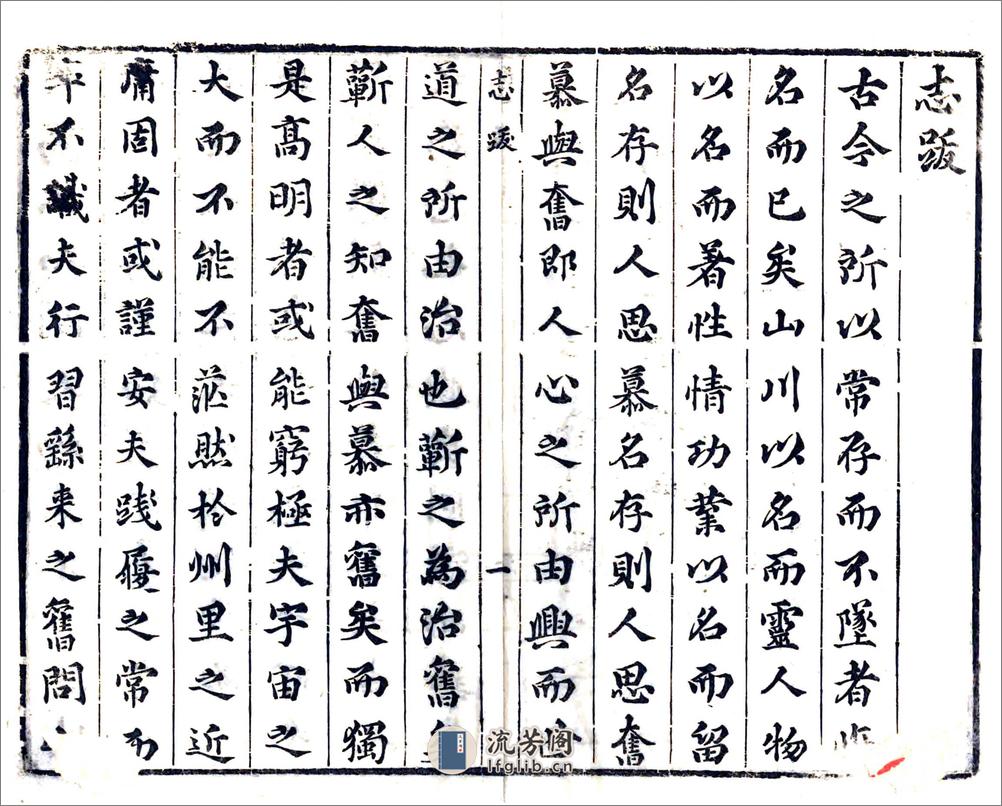 志跋
古今之所以常存而不墜者
名而已矣山川以名而靈人物
以名而著性情功業以名而留
名存則人思慕名存則人思奮
慕與奮即人心之所由興而
志跋 一
道之所由治也蘄之為治舊
蘄人之知奮與慕亦舊矣而獨
是高明者或能窮極夫宇宙之
大而不能不茫然於州里之近
庸固者或謹安夫踐履之常而
卒不識夫行習繇來之舊問
流芳阁
lfglib.cn